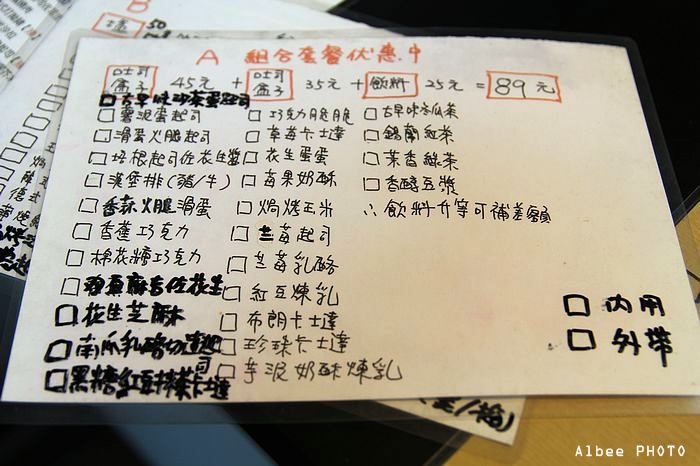 B
50
A 組合套餐優惠中
吐司盒子 45元 + 吐司盒子 35元 + 飲料 25元 = 89元
□ 薯泥蛋起司
□ 滑蛋火腿起司
□ 培根起司佐花生醬
□ 漢堡排(豬/牛)
□ 香蒜火腿滑蛋
□ 香蕉巧克力
□ 棉花糖巧克力
□ 花生芝麻
□ 巧克力脆脆
□ 草莓卡士達
□ 花生蛋蛋
□ 莓果奶酥
□ 焗烤玉米
□ 藍莓起司
□ 蘭莓乳酪
□ 紅豆煉乳
□ 布朗卡士達
□ 珍珠卡士達
□ 芋泥奶酥煉乳
□ 古早味冬瓜茶
□ 錫蘭紅茶
□ 茉香綠茶
□ 香醇豆漿
∴ 飲料升等可補差額
□ 內用
□ 外帶
Albee PHOTO